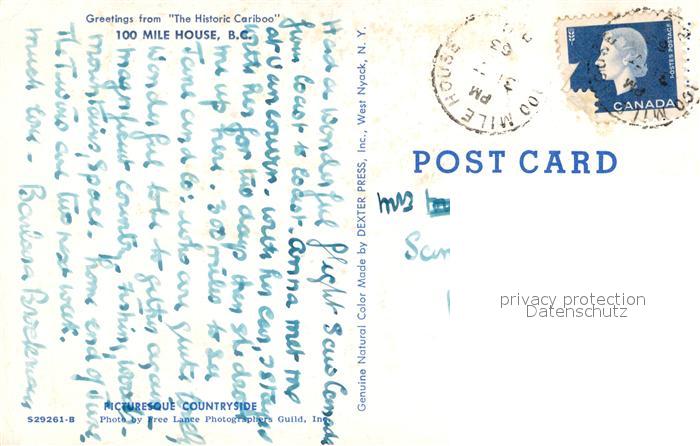 Greetings from "The Historic Cariboo"
100 MILE HOUSE, B.C.
Had a wonderful flight saw Canada
from coast to coast. Anna met me
at Vancouver with her car, I stayed
with her for two days then she drove
me up here. 300 miles to see
Jane and Jo; who are quite lovely
Wonderful to be together again -
magnificent country, fishing, woods
mountains, space. home end of June.
The Twins are two next week.
much love - Barbara Brockman
PICTURESQUE COUNTRYSIDE
S29261-B Photo by Free Lance Photographers Guild, Inc.
Genuine Natural Color Made by DEXTER PRESS, Inc., West Nyack, N. Y.
100 MILE HOUSE
PM
31
63
CANADA
POSTES POSTAGE
100 MILE
PM
POST CARD
Mrs
privacy protection
Datenschutz